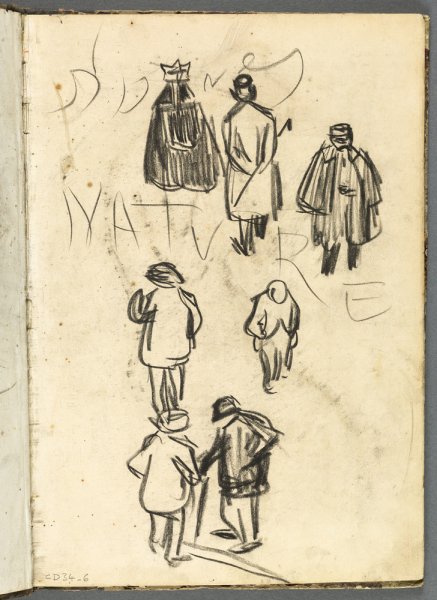 NATURE
CD34_6